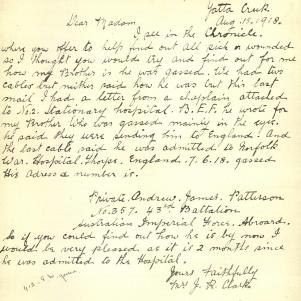 Yatta Creek
Aug. 15. 1918.
Dear Madam,
I see in the Chronicle.
where you offer to help find out all sick or wounded
so I thought you would try and find out for me
how my Brother is he was gassed. We had two
cables but neither said how he was but this last
mail I had a letter from a chaplain attached
to No. 2. Stationary hospital. B.E.F. he wrote for
my Brother Who was gassed mainly in the eyes.
he said they were sending him to England. And
the last cable said he was admitted to Norfolk
War. Hospital. Thorpe. England. 7.6.18. gassed
His adress & number is.
Private. Andrew. James. Patterson
No. 357. 43rd Battalion
Australian Imperial Force. Abroard.
so if you could find out how he is by now I
would be very pleased as it is 2 months since
he was admitted to the Hospital.
Yours Faithfully
Mrs J. R. Clarke